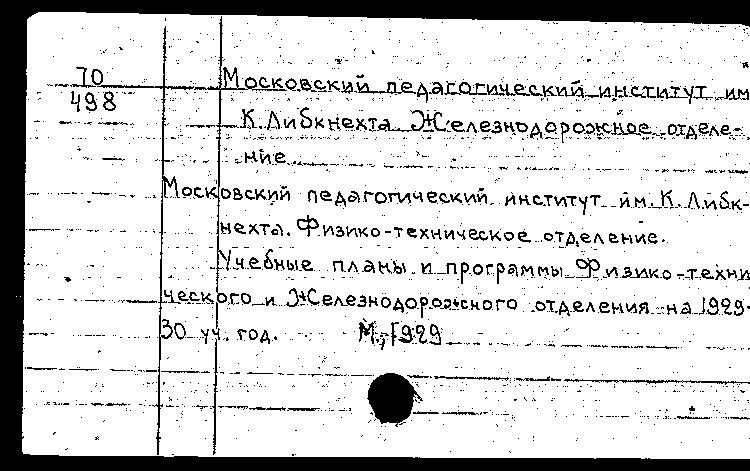 70
498
Московский педагогический институт им
К. Либкнехта. Железнодорожное отделе-
ние
Московский педагогический институт им. К. Либк-
нехта. Физико-техническое отделение.
Учебные планы и программы Физико-техни
ческого и Железнодорожного отделения на 1929-
30 уч. год. М., 1929